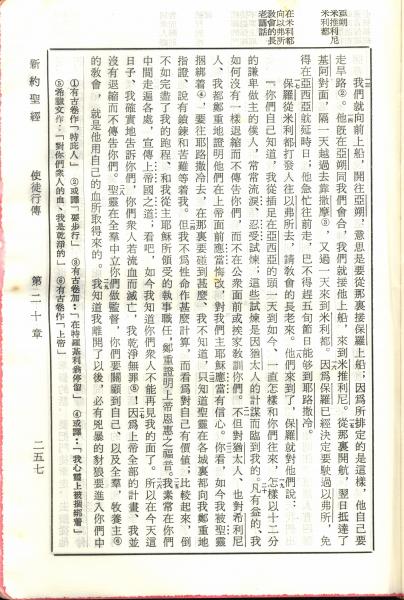 亞朔
米推利尼
米利都
在米利都
向以弗所
教會的長
老講話
我們就向前上船,開往亞朔,意思是要從那裏接保羅上船;因爲所排定的是這樣,他自己要
走旱路②。他旣在亞朔同我們會合,我們就接他上船,來到米推利尼。從那裏開航,翌日抵達了
基阿對面,隔一天越過去靠撒摩③,又過一天來到米利都。因爲保羅已經決定要駛過以弗所,免
得在亞西亞就延時日;他急忙往前走,巴不得趕五旬節日能彀到耶路撒冷。
保羅從米利都打發人往以弗所去,請教會的長老來。他們來到了,保羅就對他們說:
『你們自己知道,我從插足在亞西亞的頭一天到如今、一直怎樣和你們往來,怎樣以十二分
的謙卑做主的僕人,常常流淚、忍受試煉;這些試煉是因猶太人的計謀而臨到我的。凡有益的、我
如何沒有一樣退縮而不傳告你們,而不在公衆面前或挨家敎訓你們。不但對猶太人、也對希利尼
人、我都鄭重地證明他們在上帝面前應當悔改,對我們主耶穌應當有信心。你看,如今我被聖靈
捆綁着④,要往耶路撒冷去,在那裏要碰到甚麼、我不知道,只知道聖靈在各城裏都向我鄭重地
指證,說有鎖鍊和苦難等着我。但我不爲性命作甚麼計算,而看爲對自己有價值;比較起來,倒
不如完盡了我的跑程、和我從主耶穌所領受的執事職任、鄭重證明上帝恩惠之福音。我素常在你們
中間走遍各處,宣傳上帝國之道;看吧,如今我知道你們衆人不能再見我的面了。所以在今天這
日子、我確實地告訴你們,你們衆人若流血而滅亡,我乾淨無罪⑤!因爲上帝全部的計畫、我並
沒有退縮而不傳告你們。聖靈在全羣中立你們做監督,你們要關顧到自己、以及全羣,牧養主⑥
的敎會,就是他用自己的血所取得來的。我知道我離開了以後,必有兇暴的豺狼要進入你們中
①有古卷作「特庇人」 ②或譯「要步行」 ③有古卷加:「在特羅基利翁停留」 ④或譯:「我心靈上被捆綁着」
⑤希臘文作:「對你們衆人的血、我是乾淨的」 ⑥有古卷作「上帝」
新約聖經 使徒行傳 第二十章 二五七